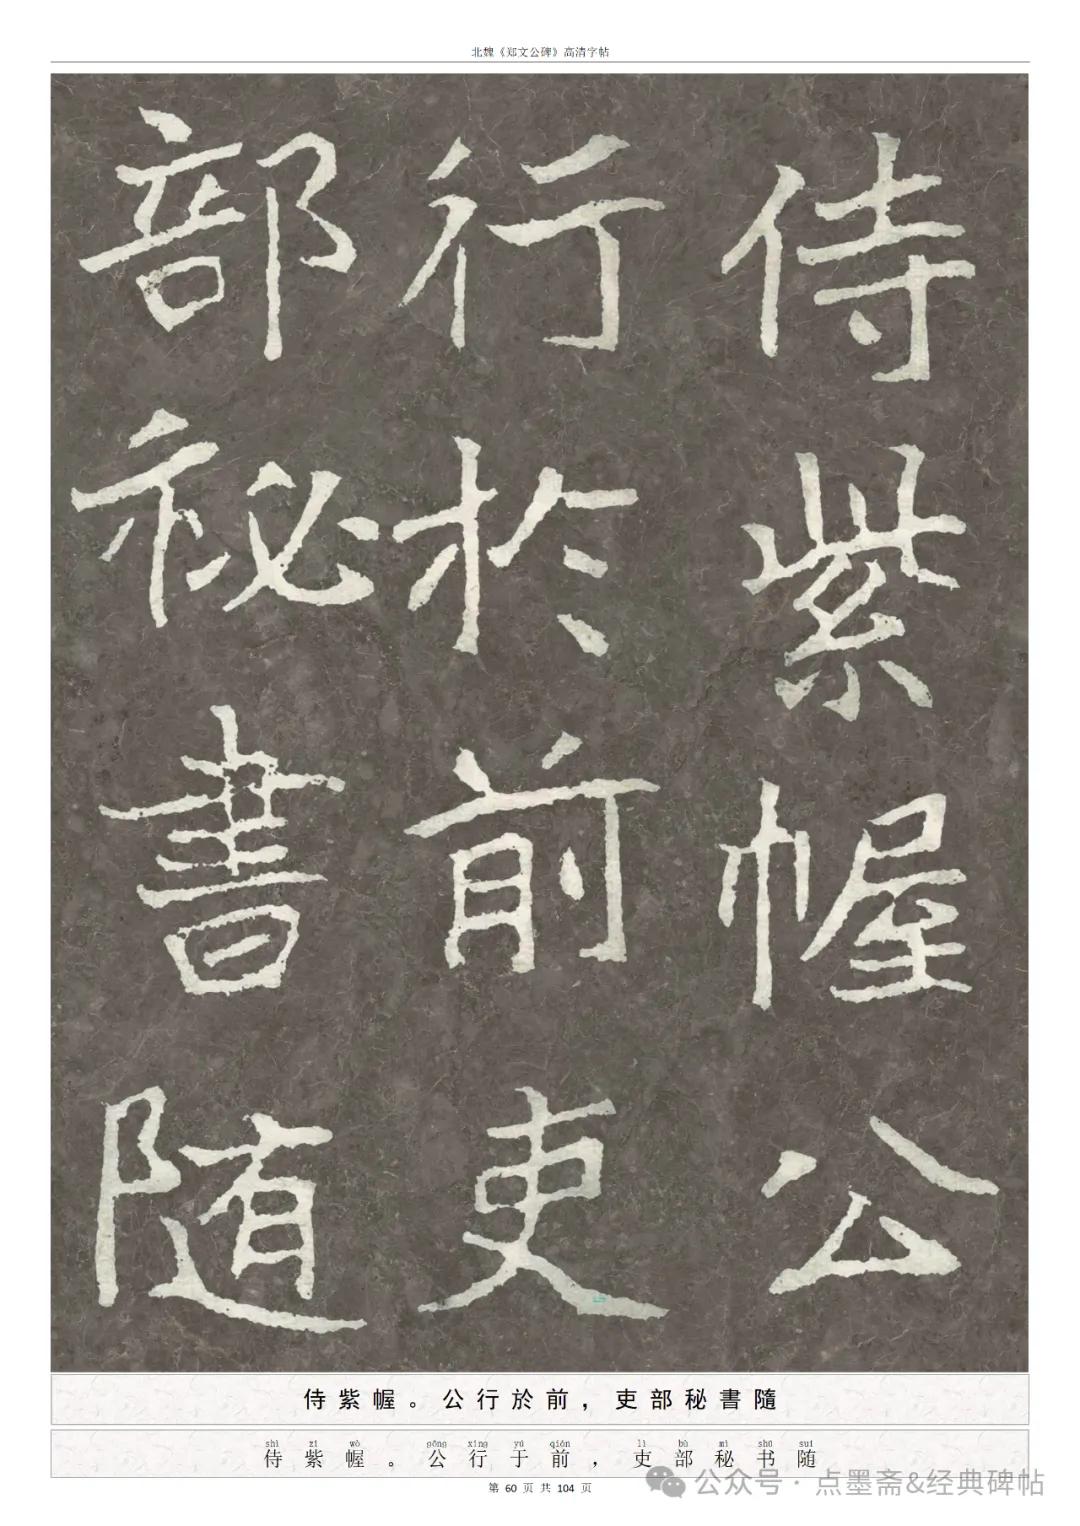 北魏《郑文公碑》高清字帖
侍紫幄公
行於前吏
部秘書随
侍紫幄。公行於前，吏部秘書隨
shì zǐ wò gōng xíng yú qián lì bù mì shū suí
侍紫幄。公行于前，吏部秘书随
第 60 页 共 104 页
公众号 · 点墨斋&经典碑帖